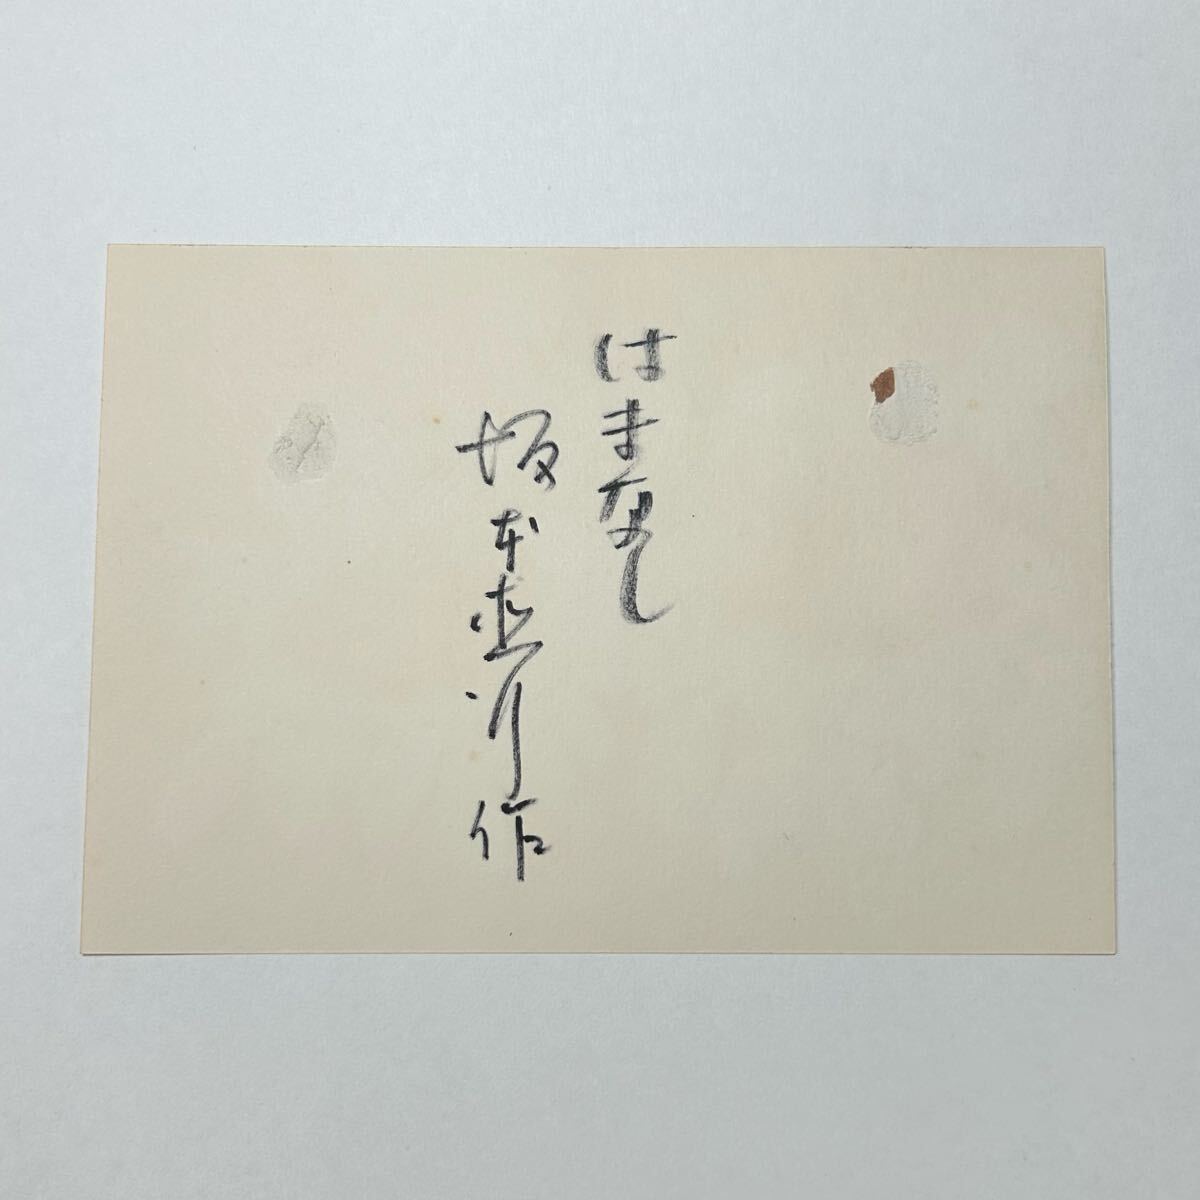 はまなし
坂本直行作